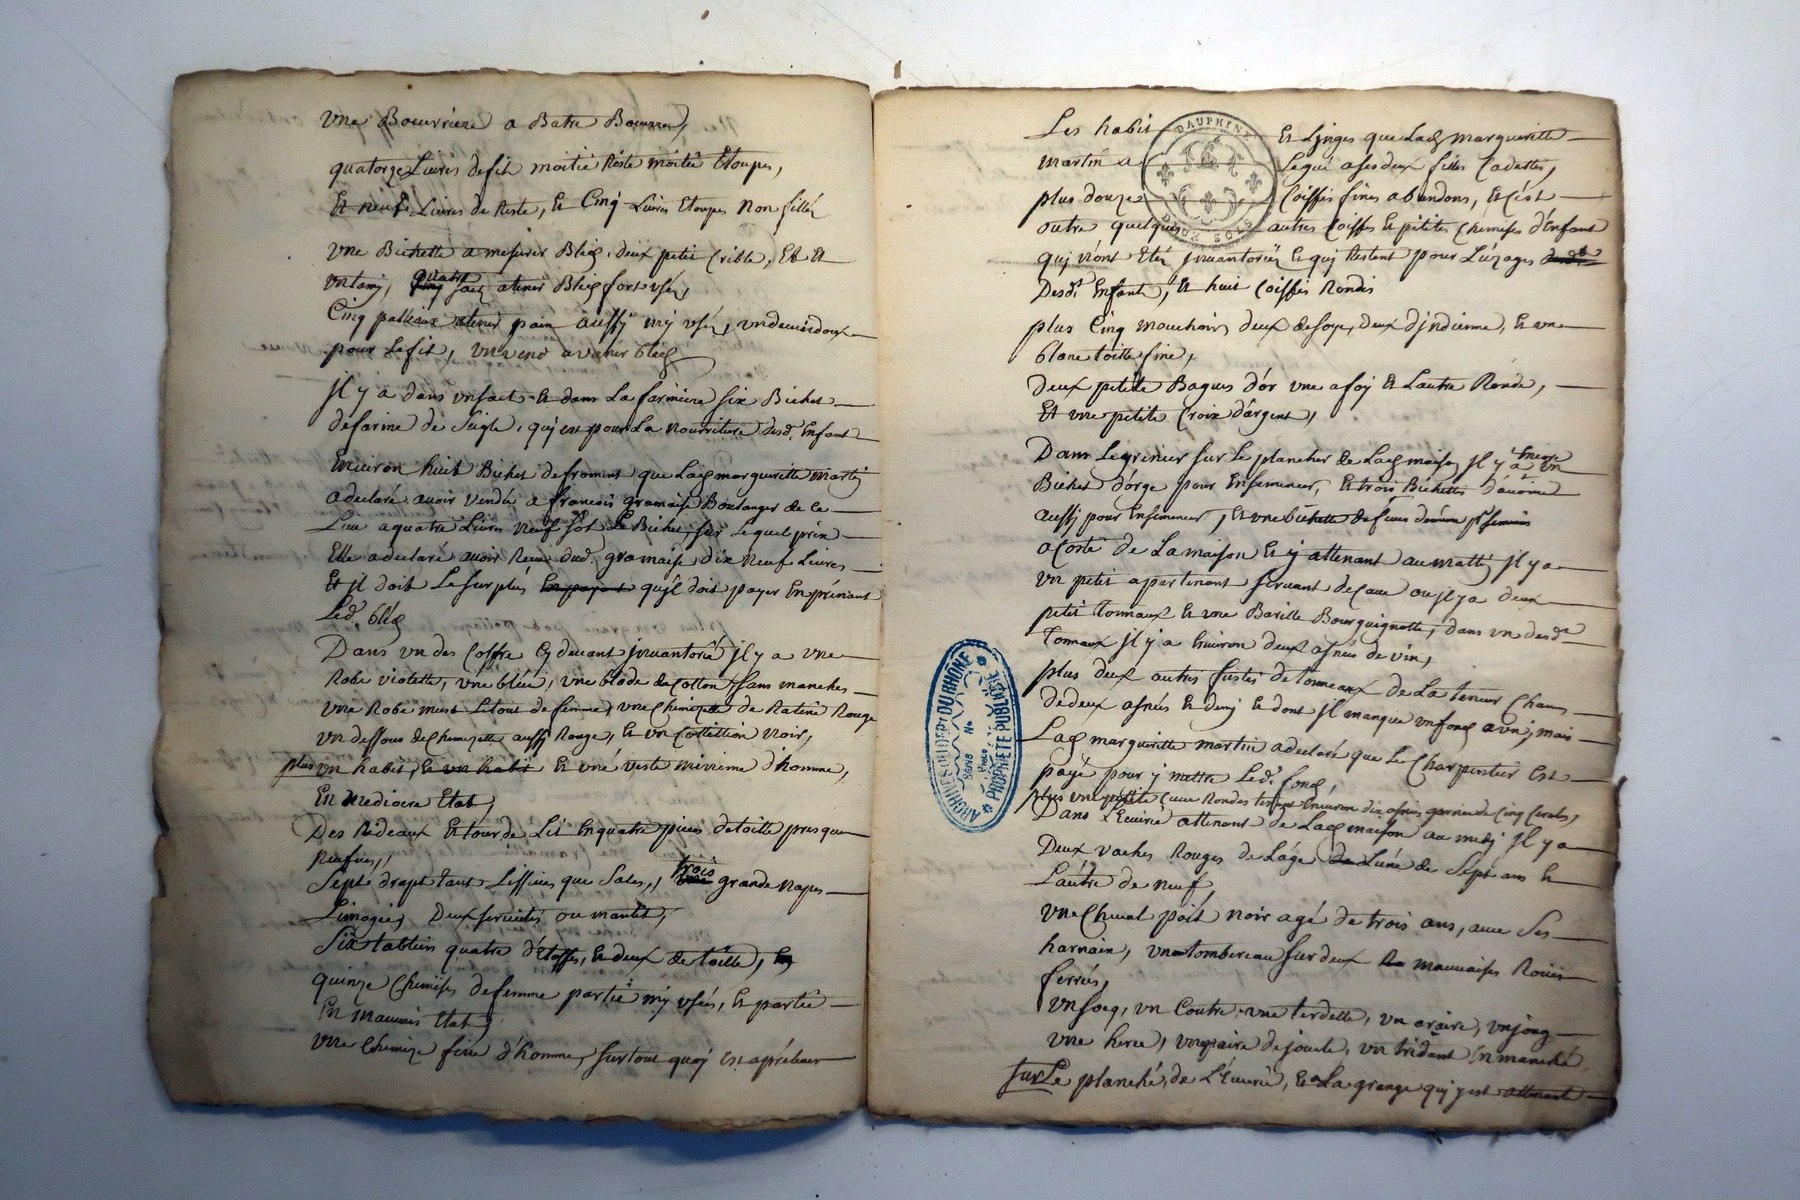 Une Beurriere a Batre Beurre,
quatorze Livres de fil moitié Riste moitié Etoupes,
Et neuf Livres de Riste, Et Cinq Livres Etoupes Non fillée
Une Bichette a mesurer Bled, deux petit Crible, Et
un tamy, quatre sacq a tenir Bled fort usés,
Cinq paillaux a tenir pain aussy my usés, un devuidoux
pour Le fil, un vend a vaner bled
Jl y a dans un sact Et dans La fariniere six Bichet
de farine de seigle, quy est pour La nourriture desd. Enfant
Environ huit Bichet de froment que Lad margueritte Martin
a declaré avoir vendu a francois gramaise Boulanger de ce
Lieu a quatre Livres neuf sols Le Bichet, sur Lequel prix
Elle a declaré avoir Receu dud. gramaise dix neuf Livres
Et jl doit Le surplus En payant qu'jl doit payer En prénant
Led. bléd
Dans un des Coffre Cy devant jnvantorié jl y a une
Robe violette, une bléue, une blode de Cotton sans manches
une Robe Le tout de femme, une Chemizette de Ratine Rouge
un dessous de Chemizette aussy Rouge, Et un Cottillion Noir,
plus un habit, Et un habit Et une veste minime d'homme,
En mediocre Etat,
Des Rideaux Et tour de Lit En quatre pieces de toille presque
neufves,
Sept drapt tant Lissives que Sales, trois grande napes
Limogées, Deux serviettes ou mantil,
Six tabliers quatre d'étoffes, Et deux de toille,
quinze Chemises de femme partie my usées, Et partie
En mauvais Etat,
une Chemize fine d'homme, surtout quoy est a préléver
Les habit Et Linges que Lad margueritte
martin a Legué a ses deux filles Cadettes,
plus douze Coiffes fines a bandons, Et c'est
outre quelques autres Coiffes Et petites Chemises d'Enfant
quj n'ont Eté jnvantoriés Et quj Restent pour L'uzages
Desd. Enfants, Et huit Coiffes Rondes
plus Cinq mouchoirs, deux de soye, deux d'jndienne, Et une
blanc toille fine,
Deux petite Bagues d'or une a foy Et Lautre Ronde,
Et une petite Croix d'argent,
Dans Le grenier sur Le plancher de Lad maison Jl y a Encore un
Bichet d'orge pour Ensemencer, Et trois Bichettes d'avoine
aussy pour Ensemencer, Et une bichette de feves
a Costé de La maison Et y attenant au matty Jl y a
un petit apartement servant de Cave ou jl y a deux
petit Tonnaux Et une Barille Bourguignotte, dans un desd.
Tonnaux jl y a Environ deux asnées de vin,
plus deux autres fustes de tonneaux de La teneur Chacun
de deux asnées Et demj Et dont jl manque un fond a un, mais
Lad marguerittte martin a declaré que Le Charpentier Est
payé pour y mettre Led. fond,
plus une petitte Cuve Ronde tenant Environ dix asnées garnie de Cinq Cercles,
Dans L'Ecurie attenant de Lad maison au midy jl y a
Deux vaches Rouges de L'age de Lune de Sept ans Et
L'autre de neuf,
une Cheval poil noir agé de trois ans, avec Ses
harnain, un tombereau sur deux mauvaises Roues
ferrées,
un socq, un Coutre, une terdelle, un araire, un joug
une herce, une paire de joucle, un tridant En manché
sur Le planché de L'Ecurie, Et La grange quj y est attenante
DAUPHINE
DEUX SOLS
ARCHIVES DU DEPT DU RHÔNE
PROPRIÉTÉ PUBLIQUE